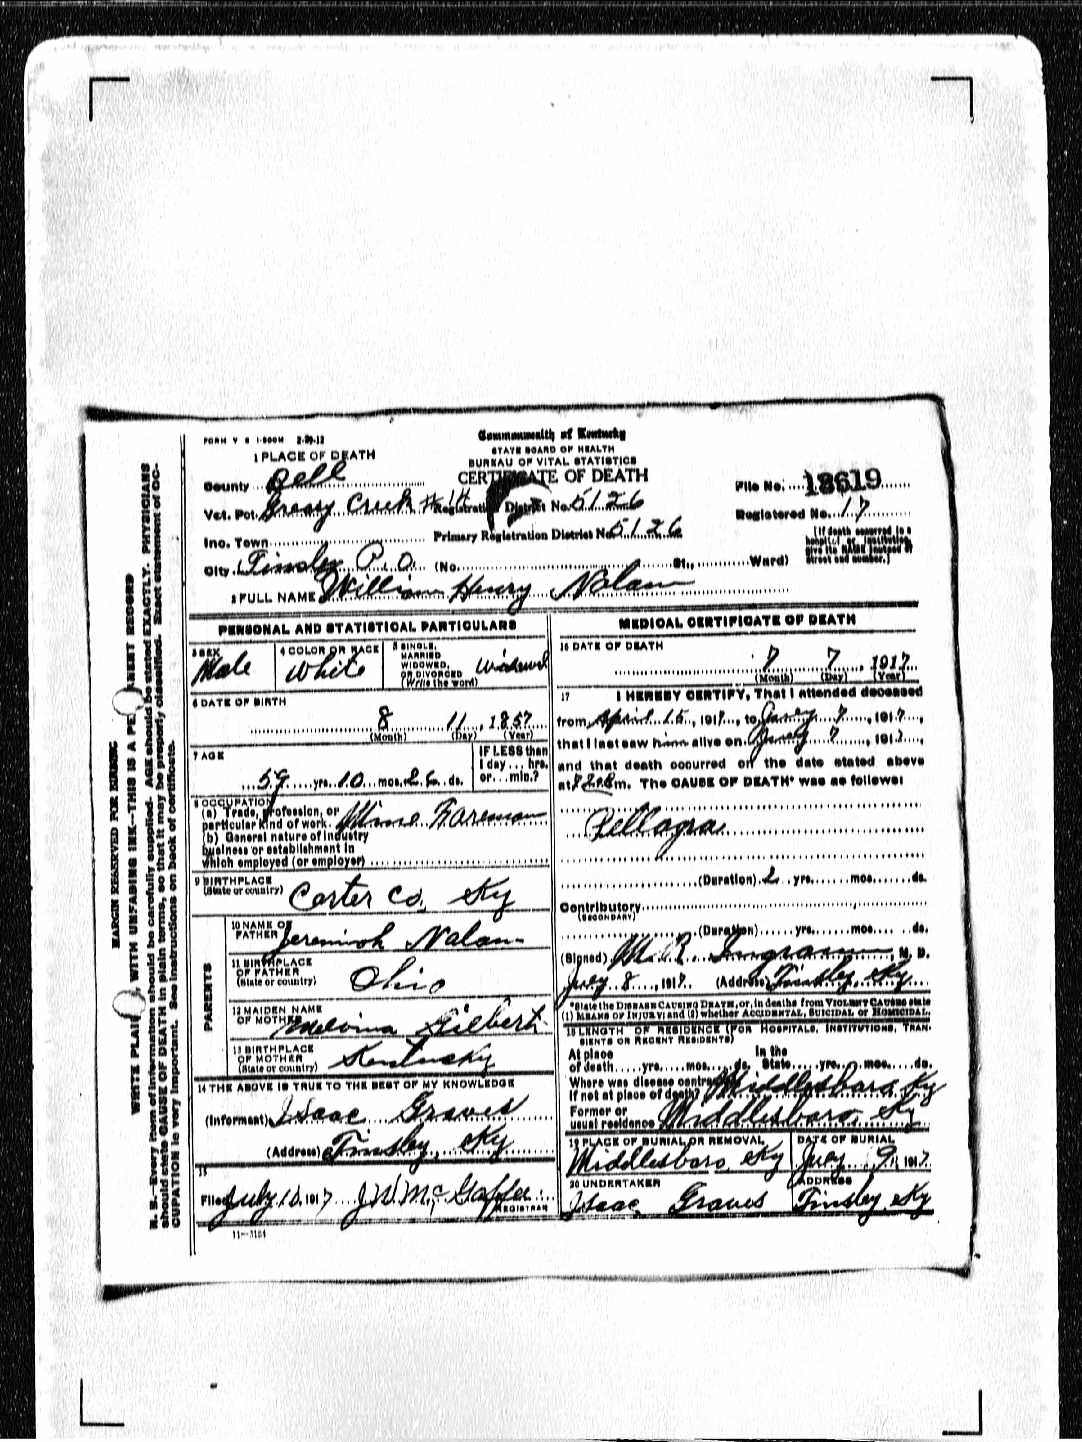 MARGIN RESERVED FOR BINDING
WRITE PLAINLY, WITH UNFADING INK—THIS IS A PERMANENT RECORD
N. B.—Every item of information should be carefully supplied. AGE should be stated EXACTLY. PHYSICIANS
should state CAUSE OF DEATH in plain terms, so that it may be properly classified. Exact statement of OC-
CUPATION is very important. See instructions on back of certificate.
FORM V S 1-500M
Commonwealth of Kentucky
STATE BOARD OF HEALTH
BUREAU OF VITAL STATISTICS
CERTIFICATE OF DEATH
1 PLACE OF DEATH
County Bell
Vot. Pct. Greasy Creek # 14 Registration District No. 5126
File No. 18619
Registered No. 17
Inc. Town Primary Registration District No. 5126
(If death occurred in a
hospital or institution,
give its NAME instead of
street and number.)
City Tinsley P. O. (No. St., Ward)
2 FULL NAME William Henry Nolan
PERSONAL AND STATISTICAL PARTICULARS
3 SEX Male
4 COLOR OR RACE White
5 SINGLE, MARRIED WIDOWED, OR DIVORCED (Write the word) Widowed
6 DATE OF BIRTH
8 11, 1857
(Month) (Day) (Year)
7 AGE
59 yrs. 10 mos. 26 ds.
IF LESS than
1 day... hrs.
or... min.?
8 OCCUPATION
(a) Trade, profession, or
particular kind of work. Mine Foreman
(b) General nature of industry
business or establishment in
which employed (or employer)
9 BIRTHPLACE
(State or country) Carter Co, Ky
PARENTS
10 NAME OF
FATHER Jeremiah Nolan
11 BIRTHPLACE
OF FATHER
(State or country) Ohio
12 MAIDEN NAME
OF MOTHER Melvina Gilbert
13 BIRTHPLACE
OF MOTHER
(State or country) Kentucky
14 THE ABOVE IS TRUE TO THE BEST OF MY KNOWLEDGE
(Informant) Isaac Graves
(Address) Tinsley, Ky
15
Filed July 1917 REGISTRAR
11-3184
MEDICAL CERTIFICATE OF DEATH
16 DATE OF DEATH
7 7, 1917
(Month) (Day) (Year)
17 I HEREBY CERTIFY, That I attended deceased
from April 15, 1917, to July 7, 1917,
that I last saw him alive on July 7, 1917,
and that death occurred on the date stated above
at m. The CAUSE OF DEATH* was as follows:
Pellagra
(Duration) 2 yrs. mos. ds.
Contributory
(SECONDARY)
(Duration) yrs. mos. ds.
(Signed) Ingram, M. D.
July 8, 1917 (Address) Tinsley, Ky
*State the DISEASE CAUSING DEATH, or, in deaths from VIOLENT CAUSES state
(1) MEANS OF INJURY; and (2) whether ACCIDENTAL, SUICIDAL or HOMICIDAL.
18 LENGTH OF RESIDENCE (FOR HOSPITALS, INSTITUTIONS, TRAN-
SIENTS OR RECENT RESIDENTS)
At place In the
of death yrs. mos. ds. State yrs. mos. ds.
Where was disease contracted Middlesboro Ky
If not at place of death?
Former or
usual residence Middlesboro, Ky
19 PLACE OF BURIAL OR REMOVAL
Middlesboro Ky
DATE OF BURIAL
July 9, 1917
20 UNDERTAKER
Isaac Graves
ADDRESS
Tinsley, Ky